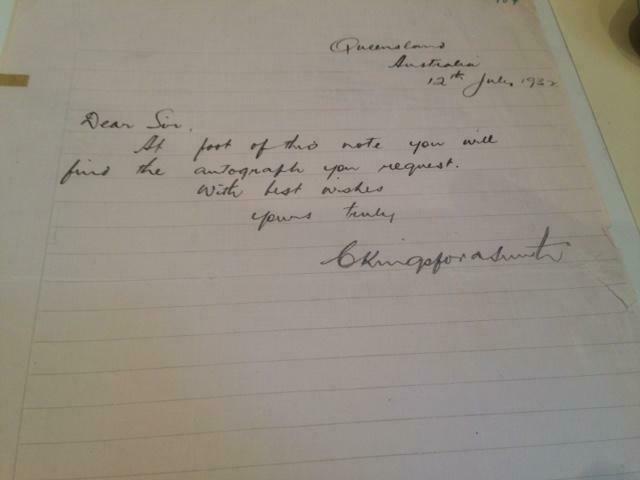 Queensland
Australia
12th July 1932
Dear Sir,
At foot of this note you will
find the autograph you request.
With best wishes
yours truly
CKingsfordSmith